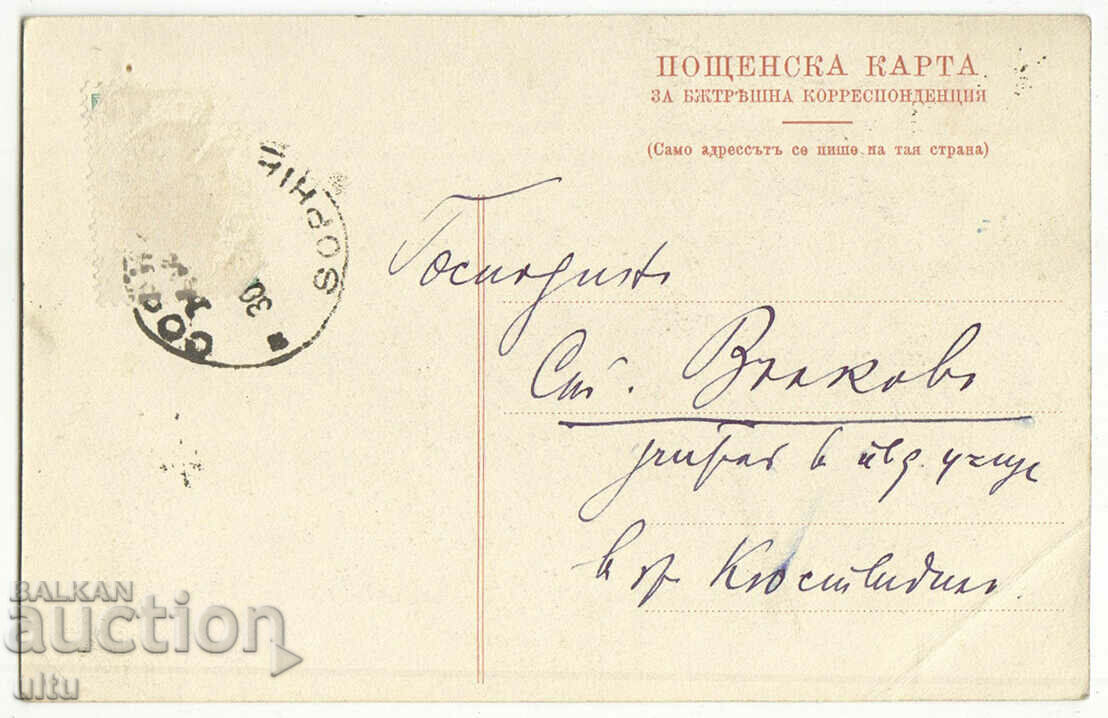 ПОЩЕНСКА КАРТА
ЗА ВѪТРѢШНА КОРРЕСПОНДЕНЦИЯ
(Само адрессътъ се пише на тая страна)
SOPHIE
СОФ
30
Господинъ
Ст. Вълковъ
въ гр. Кюстендилъ
BALKAN
auction
ultu